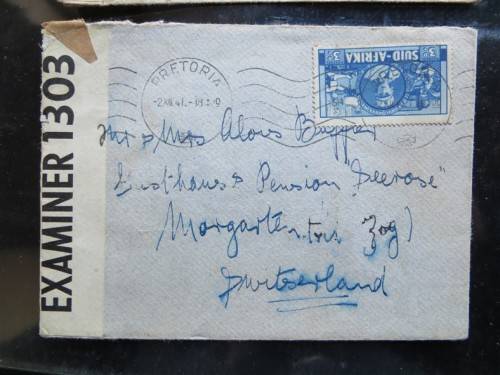 EXAMINER 1303
PRETORIA
SUID-AFRIKA
3D
Mr & Mrs Alois
Gusthaus & Pension "Seerose"
Morgarten (Zug)
Switserland